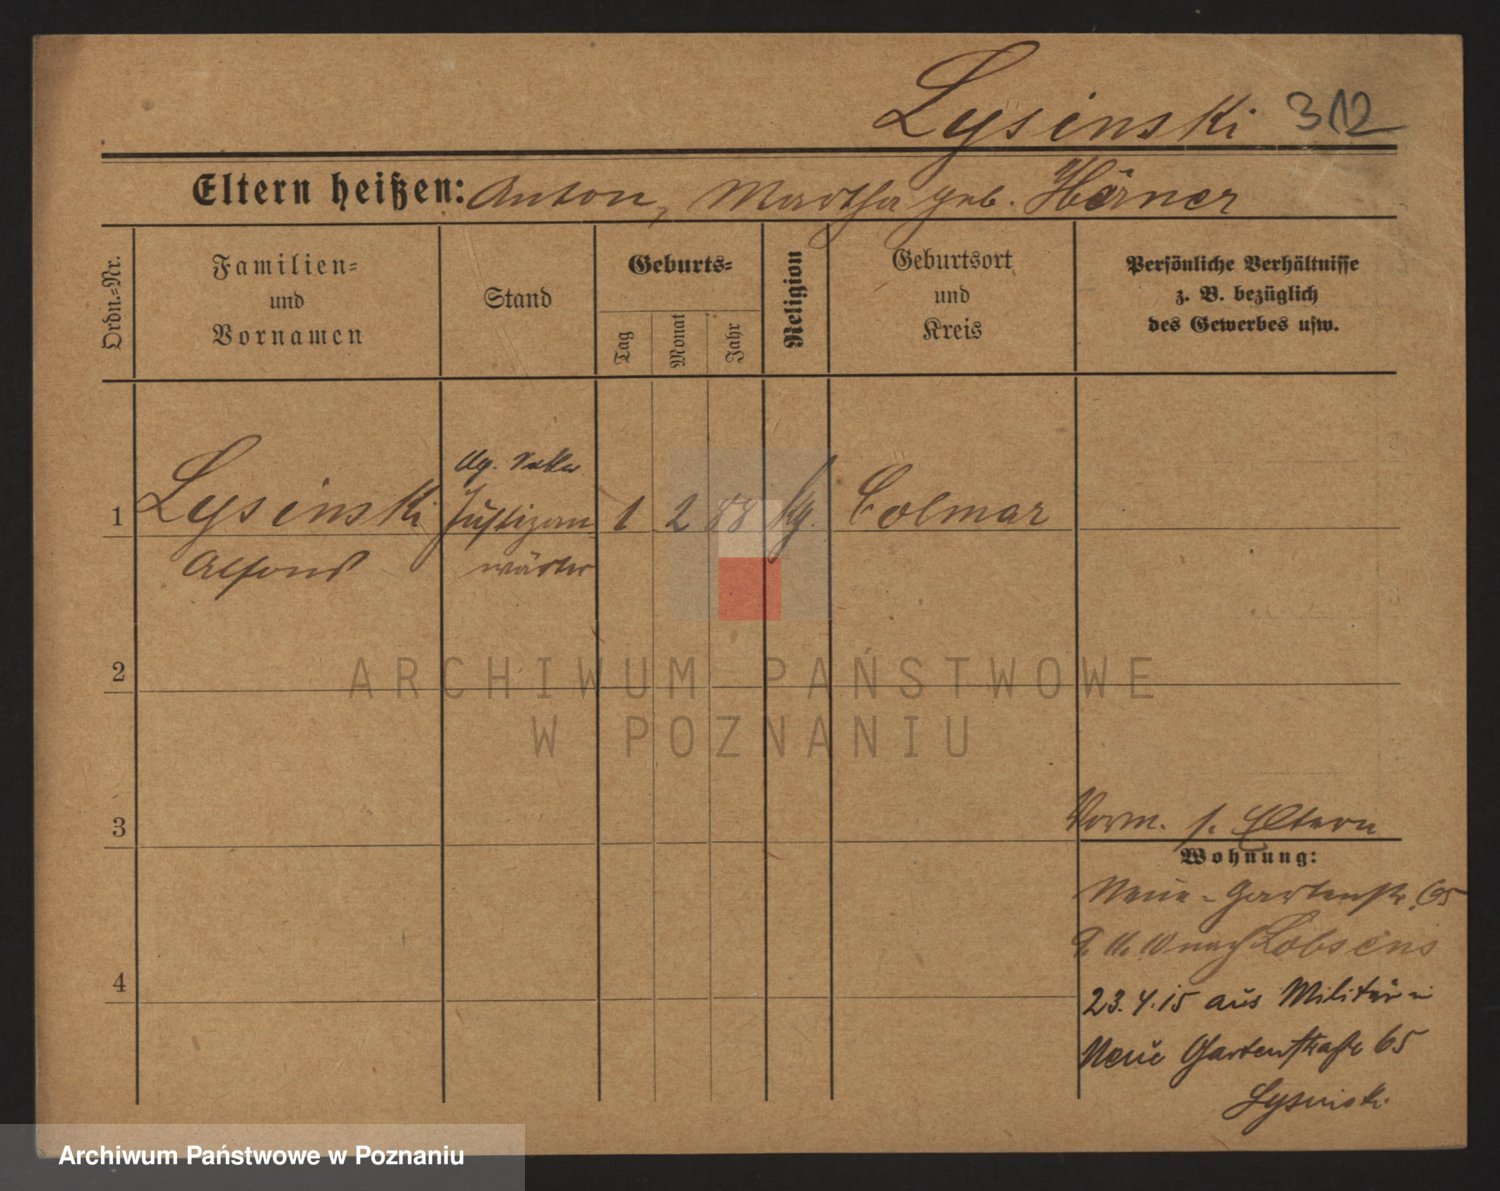 Lysinski 312
Eltern heißen: Anton, Martha geb. Hörner
Ordn.-Nr.
Familien-
und
Vornamen
Stand
Geburts-
Tag
Monat
Jahr
Religion
Geburtsort
und
Kreis
Persönliche Verhältnisse
z. B. bezüglich
des Gewerbes usw.
1
Lysinski
Alfons
Justizan-
wärter
1 2 88
Colmar
2
ARCHIWUM PAŃSTWOWE
W POZNANIU
3
Vorm. s. Eltern
Wohnung:
Neue-Gartenstr. 65
nach Lobsens
4
23.4.15 aus Militär in
Neue Gartenstraße 65
Lysinski
Archiwum Państwowe w Poznaniu